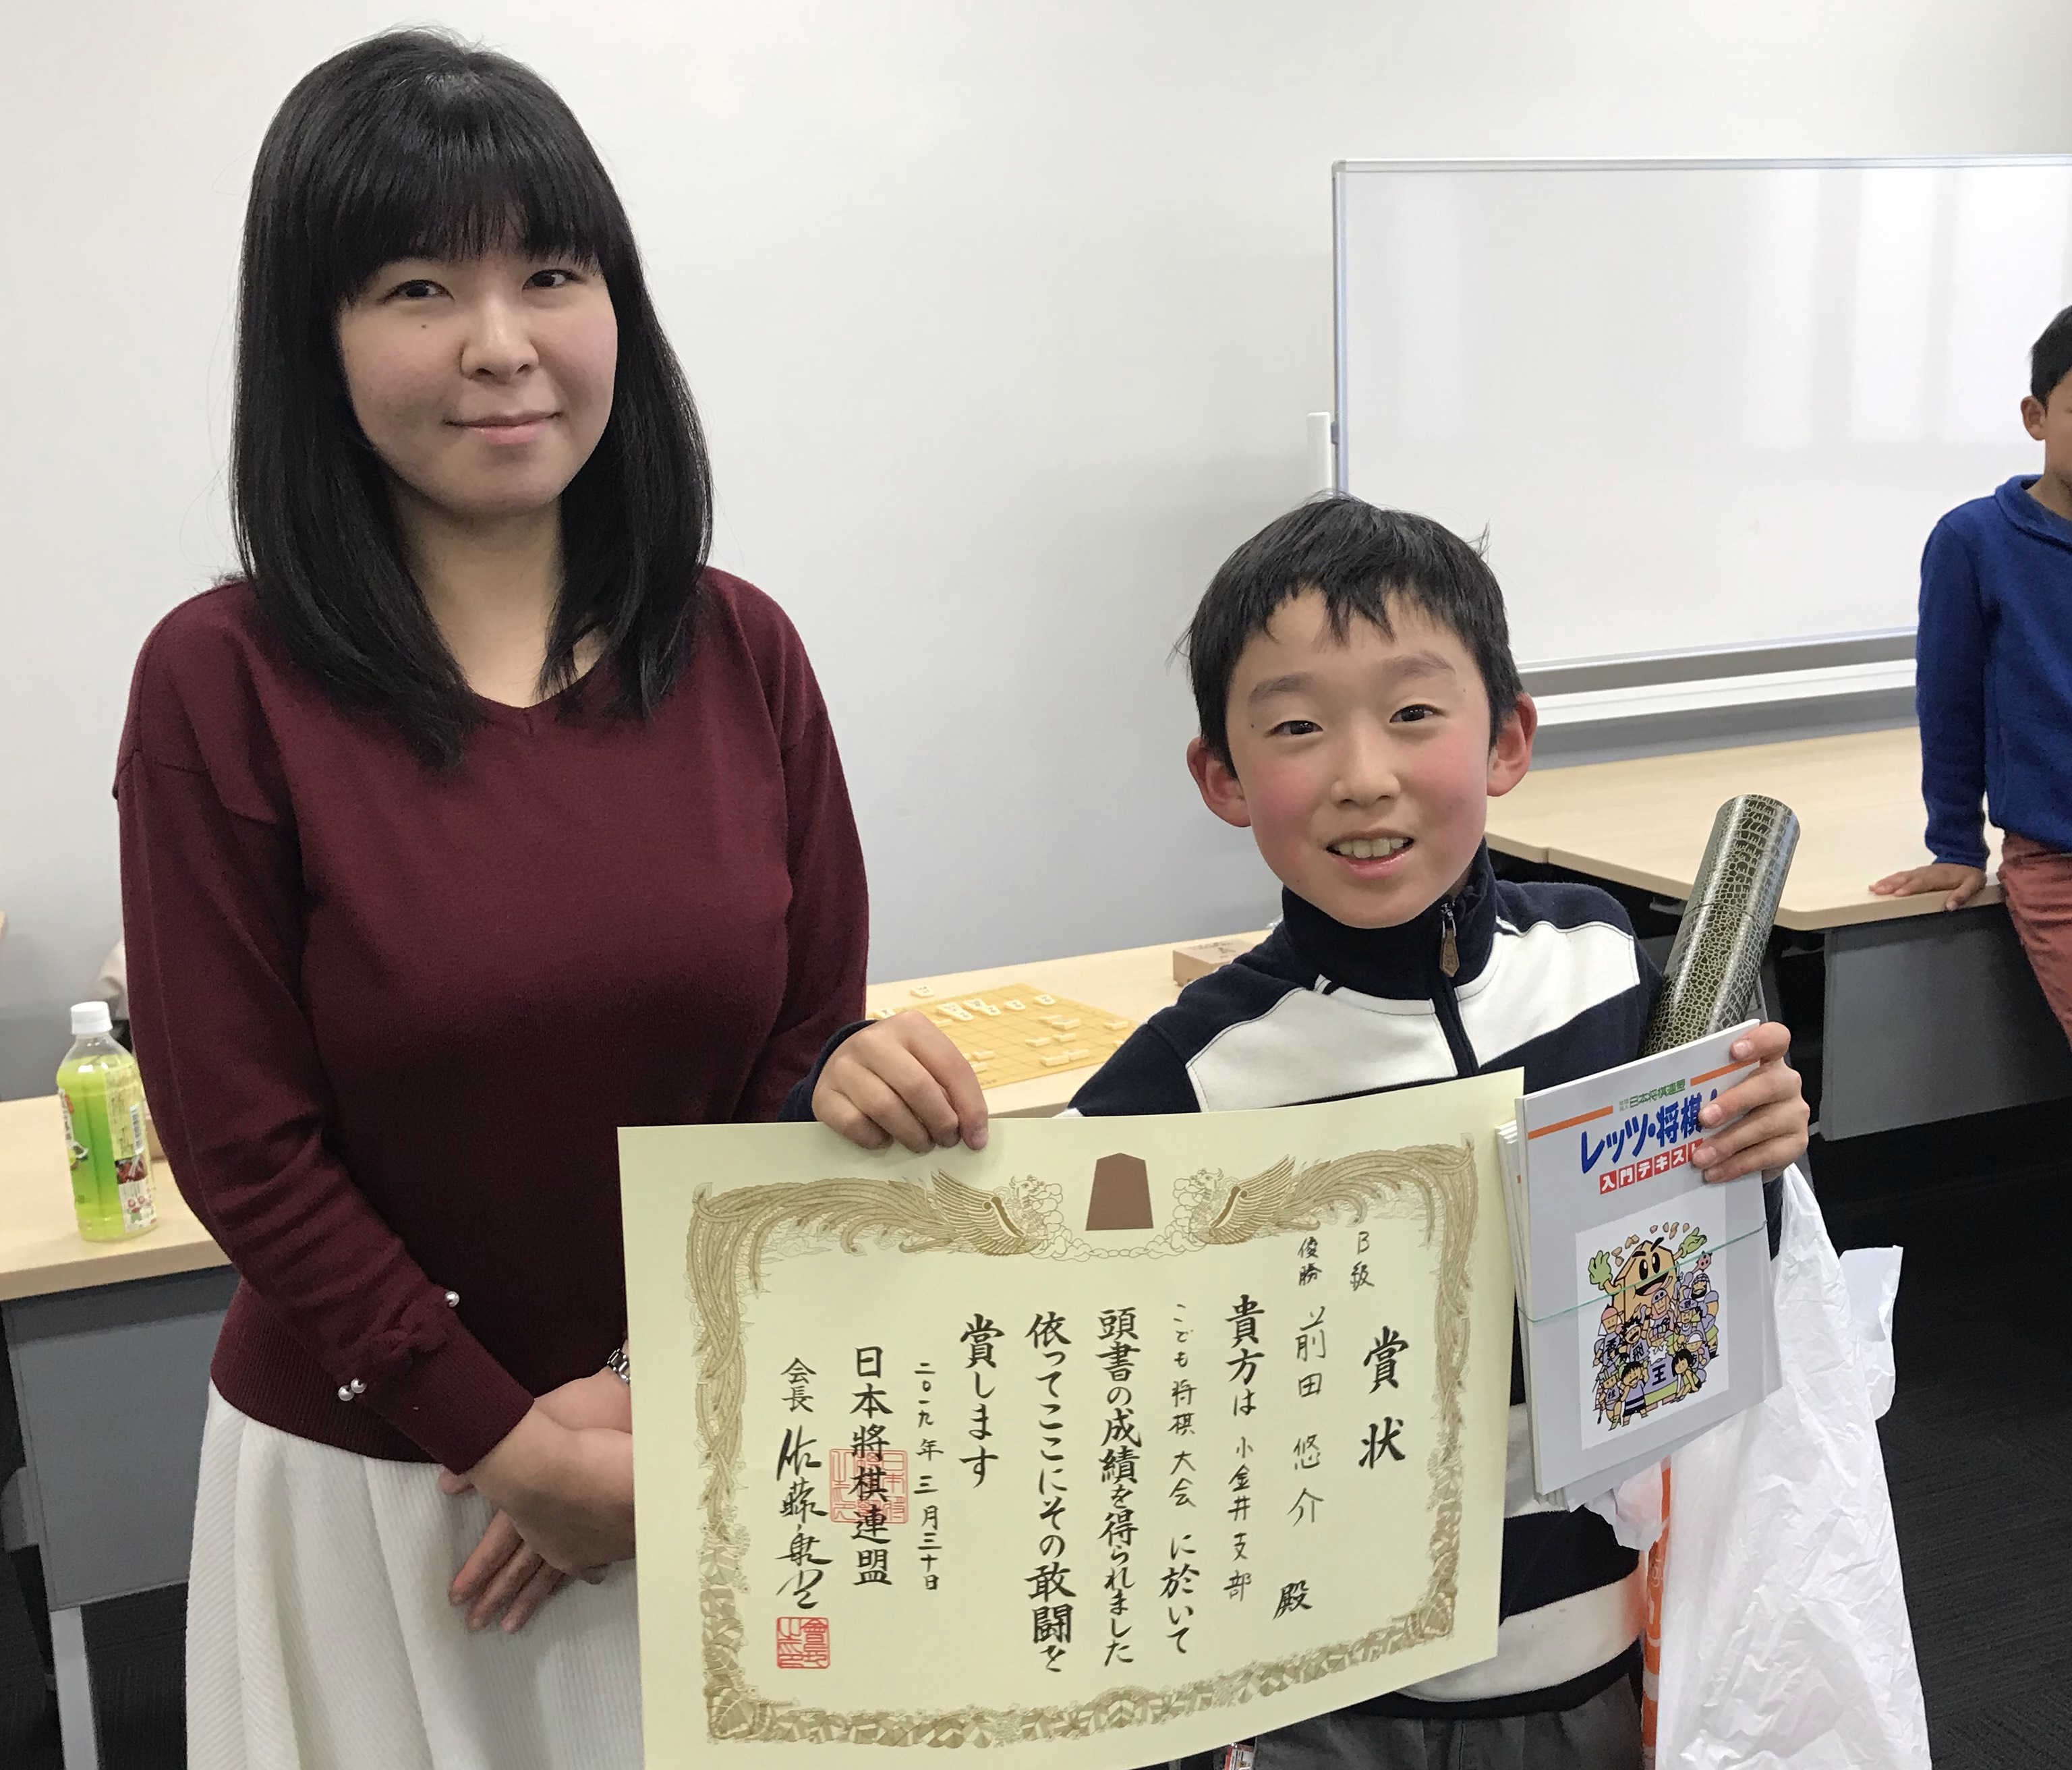 賞状
B級
優勝 前田 悠介 殿
貴方は 小金井支部
こども将棋大会 に於いて
頭書の成績を得られました
依ってここにその敢闘を
賞します
二〇一九年三月三十日
日本將棋連盟
会長 佐藤康光
日本将棋連盟
レッツ・将棋
入門テキスト
王